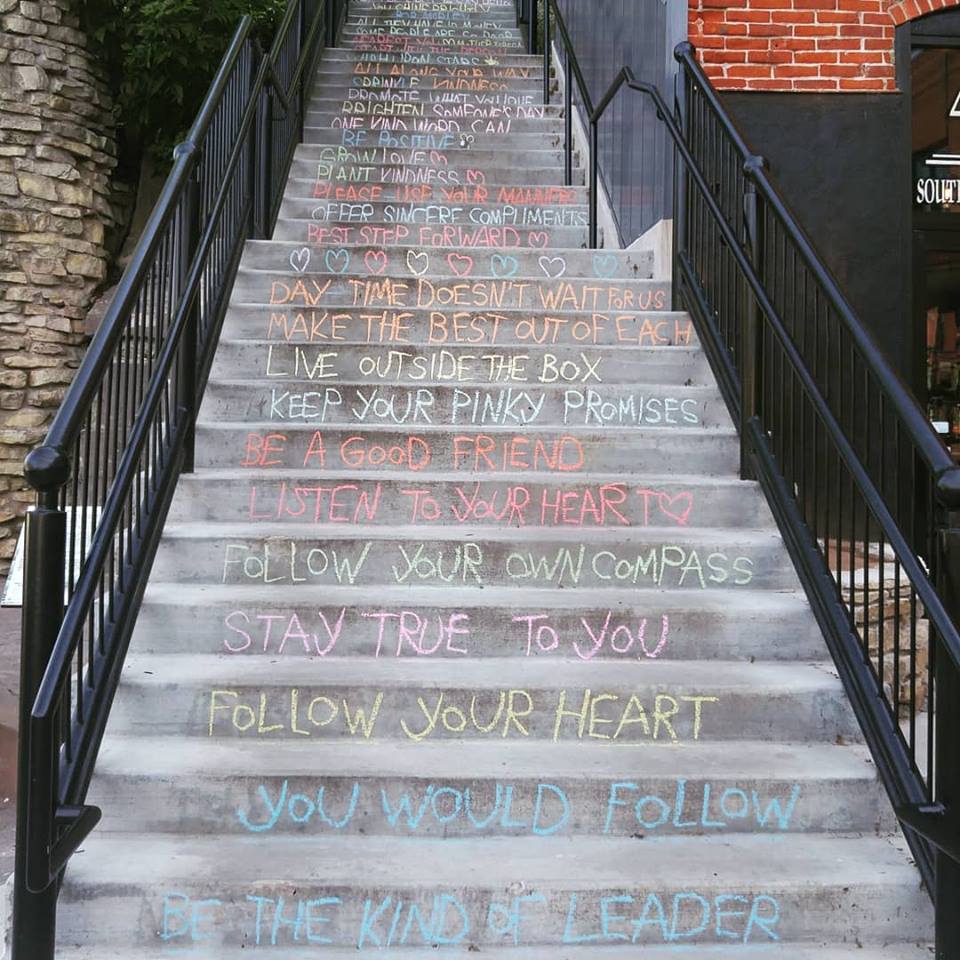 BOB MARLEY
ALL THEY HAVE IS MONEY
SOME PEOPLE ARE SO POOR
START WITH THE PERSON
WISH UPON STARS
ALL ALONG YOUR WAY
SPRINKLE KINDNESS
PROMOTE WHAT YOU LOVE
BRIGHTEN SOMEONE'S DAY
ONE KIND WORD CAN
BE POSITIVE
GROW LOVE
PLANT KINDNESS
PLEASE USE YOUR MANNERS
OFFER SINCERE COMPLIMENTS
BEST STEP FORWARD
DAY-TIME DOESN'T WAIT FOR US
MAKE THE BEST OUT OF EACH
LIVE OUTSIDE THE BOX
KEEP YOUR PINKY PROMISES
BE A GOOD FRIEND
LISTEN TO YOUR HEART
FOLLOW YOUR OWN COMPASS
STAY TRUE TO YOU
FOLLOW YOUR HEART
YOU WOULD FOLLOW
BE THE KIND OF LEADER